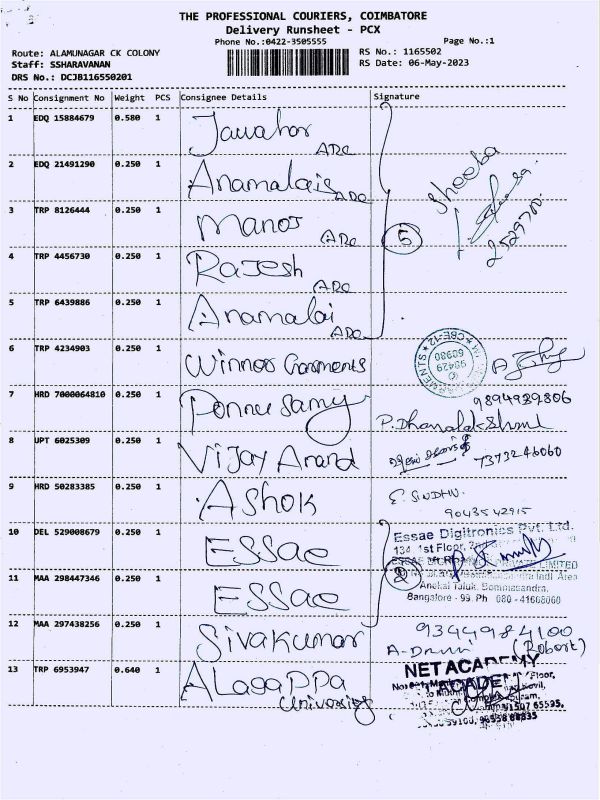 THE PROFESSIONAL COURIERS, COIMBATORE
Delivery Runsheet - PCX
Phone No.:0422-3505555 Page No.:1
Route: ALAMUNAGAR CK COLONY RS No.: 1165502
Staff: SSHARAVANAN RS Date: 06-May-2023
DRS No.: DCJB116550201
S No Consignment No Weight PCS Consignee Details Signature
1 EDQ 15884679 0.580 1 Jawahar ADC
2 EDQ 21491290 0.250 1 Anamalais ADC
Sheeba
3 TRP 8126444 0.250 1 Manoj ADC 5
2529780.
4 TRP 4456730 0.250 1 Rajesh ADC
5 TRP 6439886 0.250 1 Anamalai ADC
6 TRP 4234903 0.250 1 Winner Garments
7 HRD 7000064810 0.250 1 Ponnusamy 9894989806
P. Dhanalakshmi
8 UPT 6025309 0.250 1 Vijay Anand 7373246060
9 HRD 50283385 0.250 1 Ashok E. SINDHU.
9043542915
10 DEL 529008679 0.250 1 ESSae Essae Digitronics Pvt. Ltd.
134, 1st Floor,
11 MAA 298447346 0.250 1 ESSae 2
Anekal Taluk, Bommasandra,
Bangalore - 99. Ph 080 - 41668060
12 MAA 297438256 0.250 1 Sivakumar 9344984100
(Robert)
13 TRP 6953947 0.640 1 ALagappa University NET ACADEMY